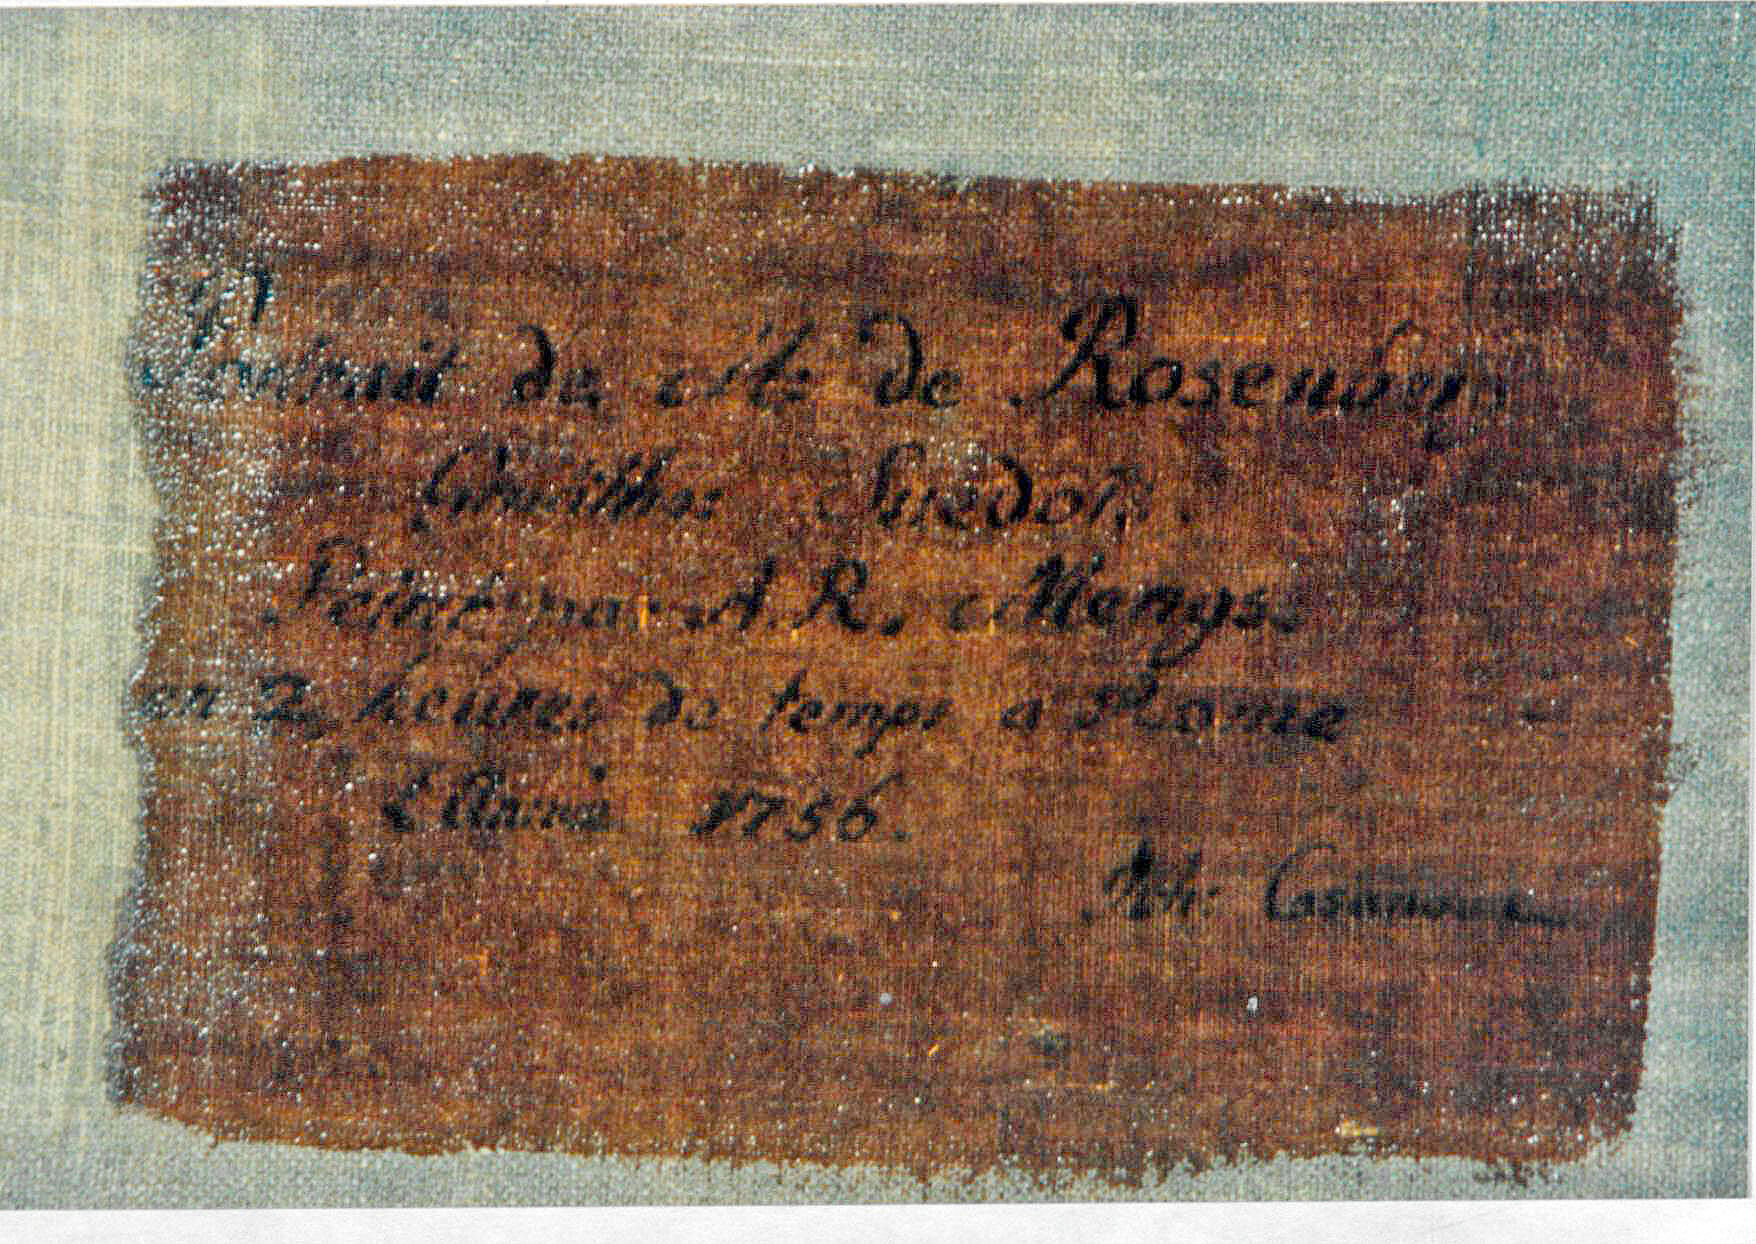 Portrait du Mr. de Rosenberg
Suedois.
Peint par A. R. Mengs.
en 2 heures de temps a Rome
l'Année 1756.
Casanova